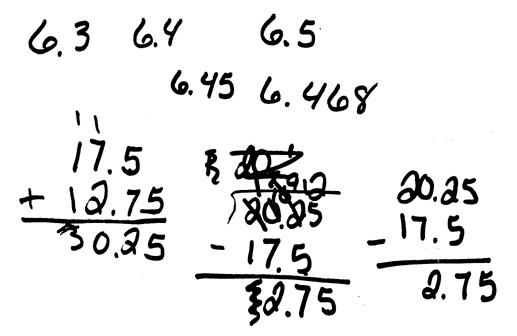 6.3 6.4 6.5
6.45 6.468
1 1
17.5
+ 12.75
30.25
20.25
- 17.5
2.75
20.25
- 17.5
2.75